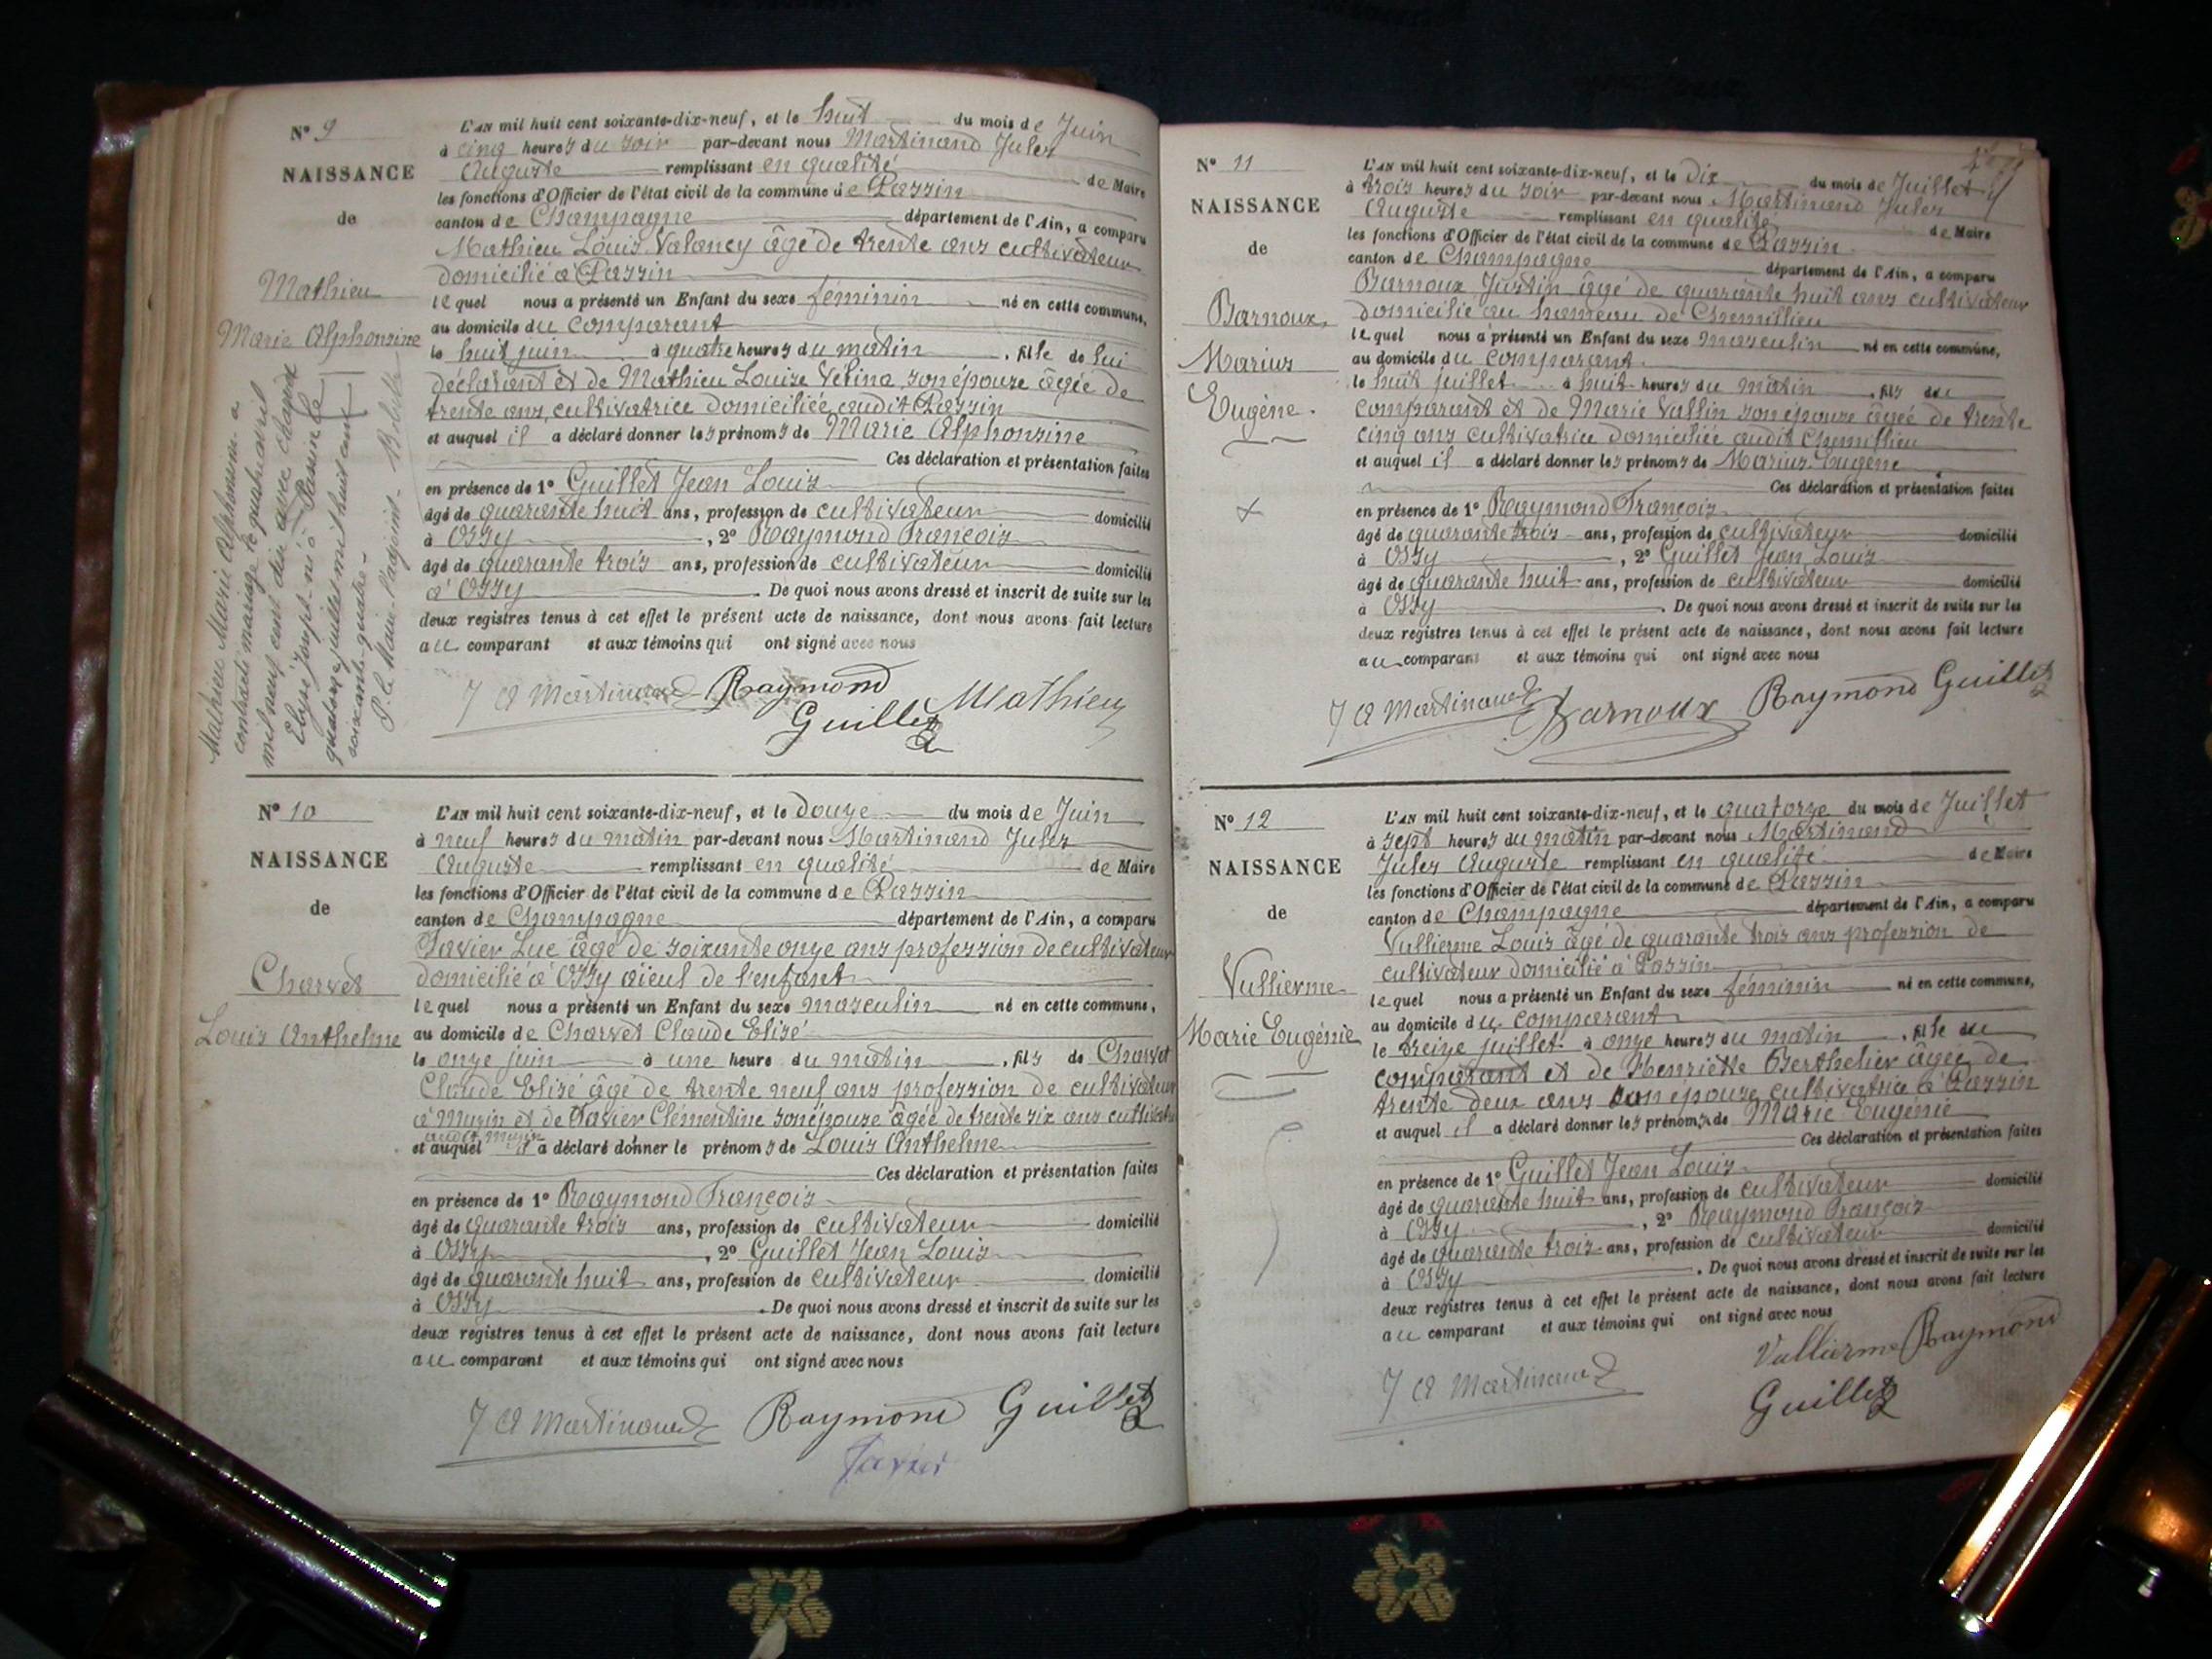 N° 9
NAISSANCE
de
Mathieu
Marie Alphonsine
Mathieu Marie Alphonsine a
contracté mariage le quatre avril
mil neuf cent dix avec
Elysé Joseph né à Passin le
quatorze juillet mil huit cent
soixante-quatre.
P. le Maire l'adjoint
L'AN mil huit cent soixante-dix-neuf, et le huit du mois de Juin
à cinq heures du soir par-devant nous Martinand Jules
Auguste remplissant en qualité de Maire
les fonctions d'Officier de l'état civil de la commune de Passin
canton de Champagne département de l'Ain, a comparu
Mathieu Louis Valancy âgé de trente ans cultivateur
domicilié à Passin
lequel nous a présenté un Enfant du sexe féminin né en cette commune,
au domicile du comparant
le huit juin à quatre heures du matin, fille de lui
déclarant et de Mathieu Louise Vérina son épouse âgée de
trente ans, cultivatrice domiciliée audit Passin
et auquel il a déclaré donner les prénoms de Marie Alphonsine
Ces déclaration et présentation faites
en présence de 1° Guillet Jean Louis
âgé de quarante huit ans, profession de cultivateur domicilié
à Ossy, 2° Raymond François
âgé de quarante trois ans, profession de cultivateur domicilié
à Ossy. De quoi nous avons dressé et inscrit de suite sur les
deux registres tenus à cet effet le présent acte de naissance, dont nous avons fait lecture
au comparant et aux témoins qui ont signé avec nous
J A Martinand Raymond
Guillet Mathieu
N° 10
NAISSANCE
de
Charvet
Louis Anthelme
L'AN mil huit cent soixante-dix-neuf, et le douze du mois de Juin
à neuf heures du matin par-devant nous Martinand Jules
Auguste remplissant en qualité de Maire
les fonctions d'Officier de l'état civil de la commune de Passin
canton de Champagne département de l'Ain, a comparu
Savier Luc âgé de soixante onze ans profession de cultivateur
domicilié à Ossy aïeul de l'enfant
lequel nous a présenté un Enfant du sexe masculin né en cette commune,
au domicile de Charvet Claude Elisé
le onze juin à une heure du matin, fils de Charvet
Claude Elisé âgé de trente neuf ans profession de cultivateur
à Munin et de Savier Clémentine son épouse âgée de trente six ans
audit Munin
et auquel il a déclaré donner le prénoms de Louis Anthelme
Ces déclaration et présentation faites
en présence de 1° Raymond François
âgé de quarante trois ans, profession de cultivateur domicilié
à Ossy, 2° Guillet Jean Louis
âgé de quarante huit ans, profession de cultivateur domicilié
à Ossy. De quoi nous avons dressé et inscrit de suite sur les
deux registres tenus à cet effet le présent acte de naissance, dont nous avons fait lecture
au comparant et aux témoins qui ont signé avec nous
J A Martinand Raymond Guillet
Savier
N° 11
NAISSANCE
de
Barnoux
Marius
Eugène.
L'AN mil huit cent soixante-dix-neuf, et le dix du mois de Juillet
à trois heures du soir par-devant nous Martinand Jules
Auguste remplissant en qualité de Maire
les fonctions d'Officier de l'état civil de la commune de Passin
canton de Champagne département de l'Ain, a comparu
Barnoux Justin âgé de quarante huit ans cultivateur
domicilié au hameau de Chemillieu
lequel nous a présenté un Enfant du sexe masculin né en cette commune,
au domicile du comparant.
le huit juillet à huit heures du matin, fils du
comparant et de Marie Vallin son épouse âgée de trente
cinq ans cultivatrice domiciliée audit Chemillieu
et auquel il a déclaré donner les prénoms de Marius Eugène
Ces déclaration et présentation faites
en présence de 1° Raymond François
âgé de quarante trois ans, profession de cultivateur domicilié
à Ossy, 2° Guillet Jean Louis
âgé de quarante huit ans, profession de cultivateur domicilié
à Ossy. De quoi nous avons dressé et inscrit de suite sur les
deux registres tenus à cet effet le présent acte de naissance, dont nous avons fait lecture
au comparant et aux témoins qui ont signé avec nous
J A Martinand Barnoux Raymond Guillet
N° 12
NAISSANCE
de
Vullierme
Marie Eugénie
L'AN mil huit cent soixante-dix-neuf, et le quatorze du mois de Juillet
à sept heures du matin par-devant nous Martinand
Jules Auguste remplissant en qualité de Maire
les fonctions d'Officier de l'état civil de la commune de Passin
canton de Champagne département de l'Ain, a comparu
Vullierme Louis âgé de quarante trois ans profession de
cultivateur domicilié à Passin
lequel nous a présenté un Enfant du sexe féminin né en cette commune,
au domicile du comparant
le treize juillet à onze heures du matin, fille du
comparant et de Henriette Berthelier âgée de
trente deux ans son épouse cultivatrice à Passin
et auquel il a déclaré donner les prénoms de Marie Eugénie
Ces déclaration et présentation faites
en présence de 1° Guillet Jean Louis
âgé de quarante huit ans, profession de cultivateur domicilié
à Ossy, 2° Raymond François
âgé de quarante trois ans, profession de cultivateur domicilié
à Ossy. De quoi nous avons dressé et inscrit de suite sur les
deux registres tenus à cet effet le présent acte de naissance, dont nous avons fait lecture
au comparant et aux témoins qui ont signé avec nous
Vullierme Raymond
J A Martinand
Guillet